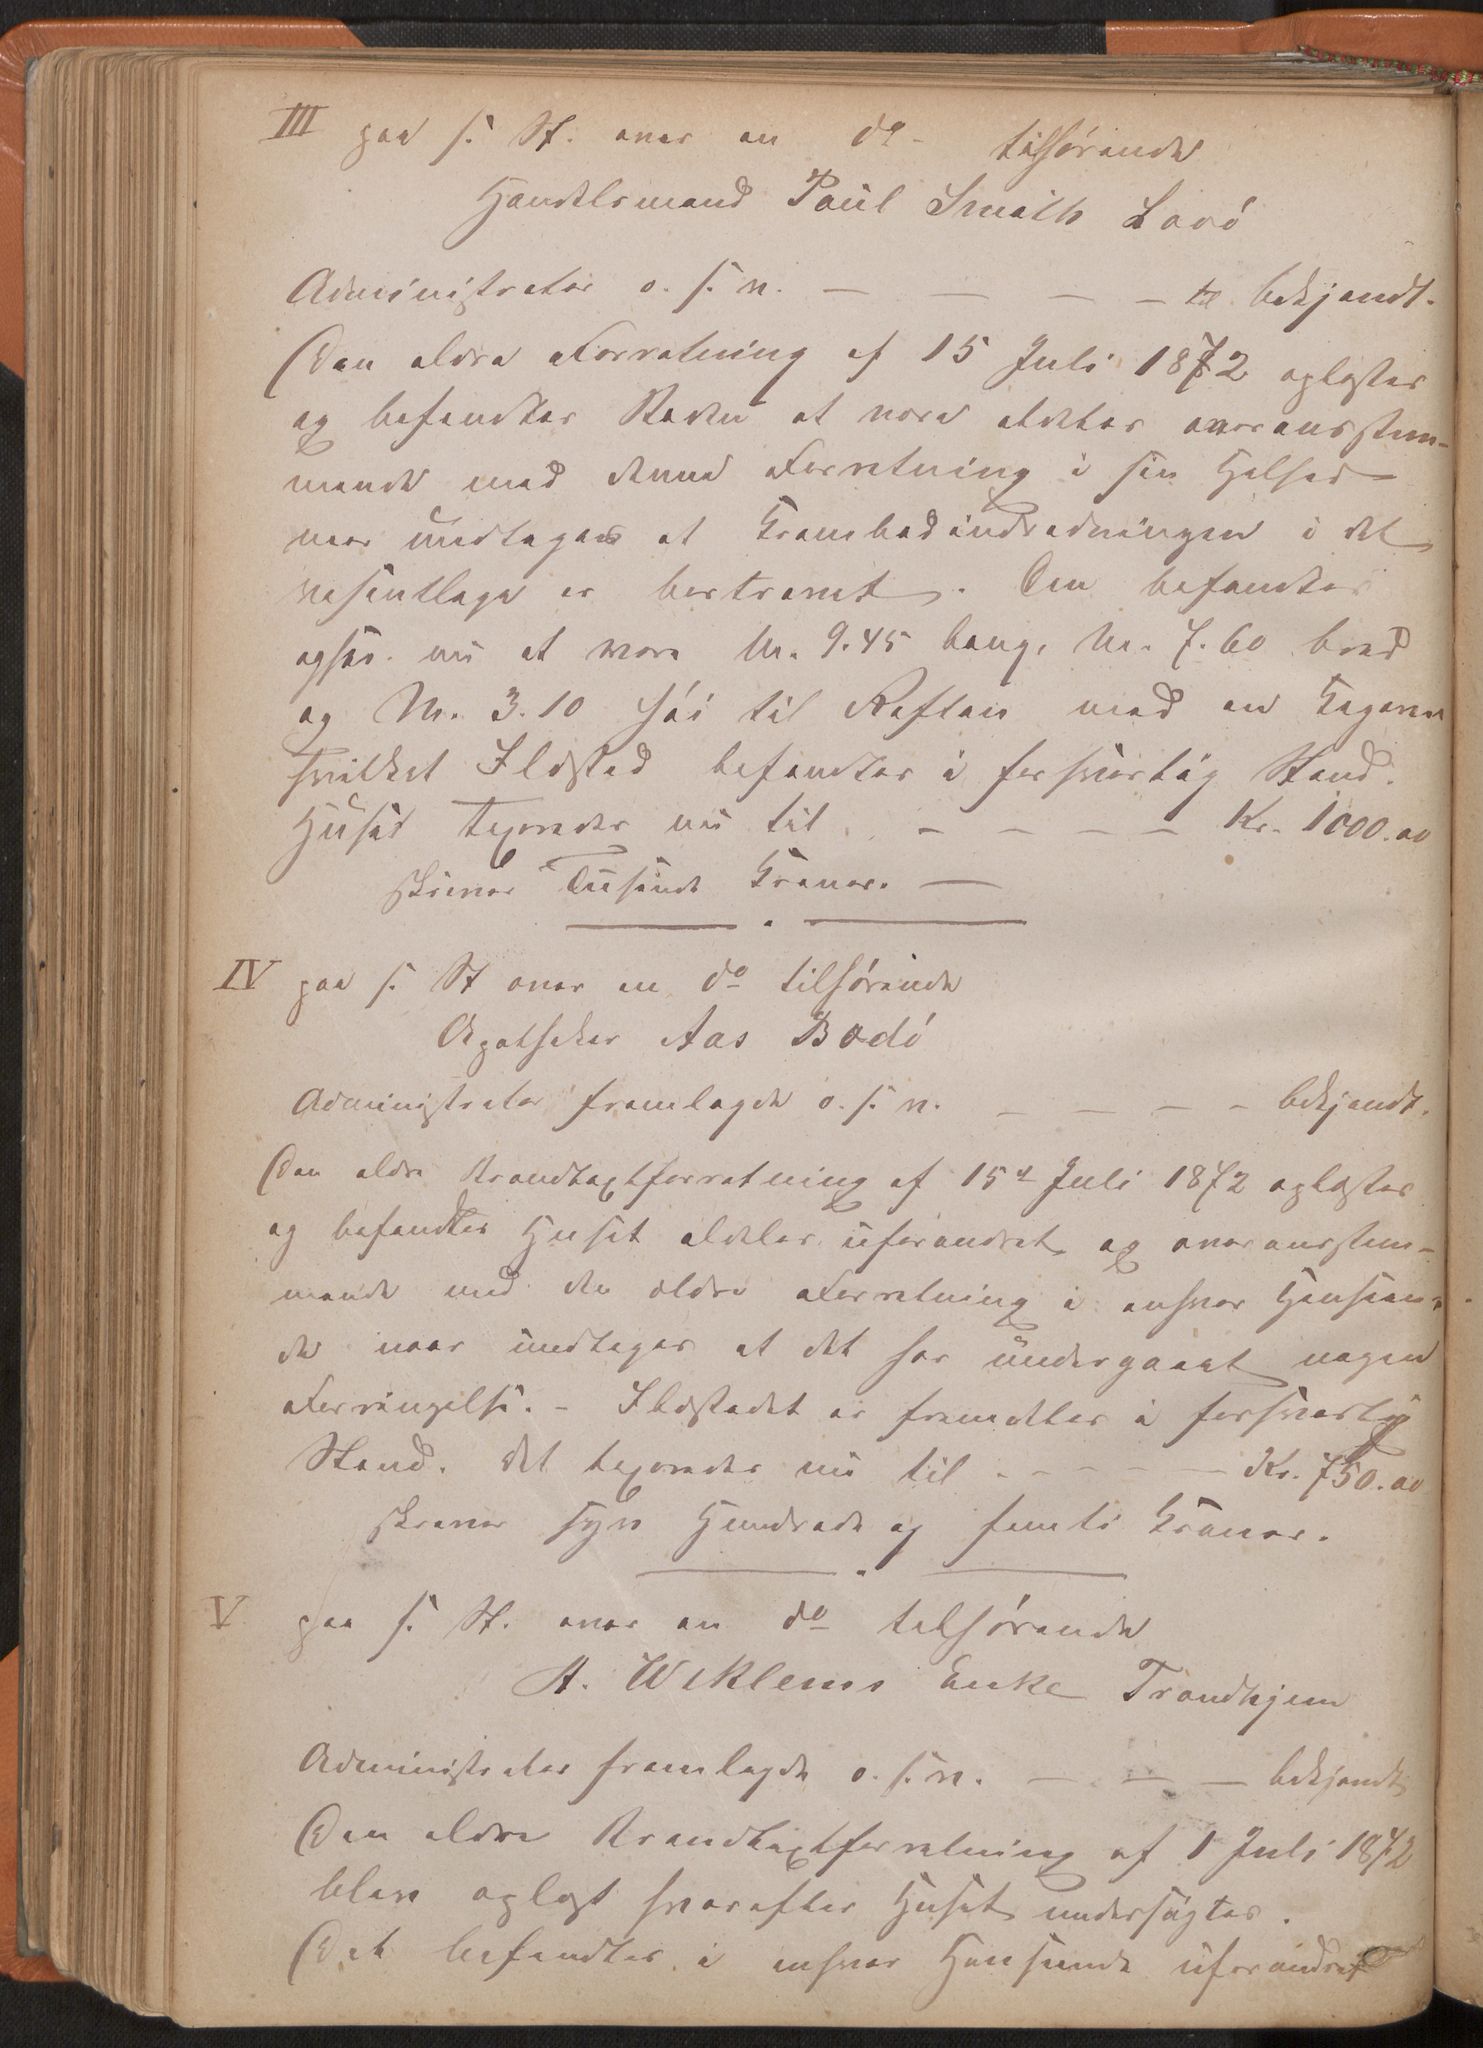 III paa s. St. over en do tilhørende
Handelsmand Paul Smith Lovö
Administrator o. s. v. — — — — bekjendt.
Den ældre Forretning af 15 Juli 1872 oplæstes
og befandtes Boden at være aldeles overensstem-
mende med denne Forretning i sin Helhed
naar undtages at Krambodindredningen i det
væsentlige er borttaget. Den befandtes
ogsaa nu at være M. 9.45 lang, M. 7.60 bred
og M. 3.10 høi til Raften med en Kogeovn
hvilket Ildsted befandtes i forsvarlig Stand.
Huset taxeredes nu til — — — — Kr. 1000.00
skriver Tusinde Kroner. —
IV paa s. St over en do tilhørende
Apotheker Aas Bodö
Administrator fremlagde o. s. v. — — — — bekjendt.
Den ældre Brandtaxtforretning af 15de Juli 1872 oplæstes
og befandtes Huset aldeles uforandret og overensstem-
mende med den ældre Forretning i enhver Henseen-
de naar undtages at det har undergaaet nogen
Forringelse. – Ildstedet er fremdeles i forsvarlig
Stand. Det taxeredes nu til - - - - - Kr. 750.00
skriver syv Hundrede og femti Kroner.
V paa s. St. over en do tilhørende
A. Wiklems Enke Trondhjem
Administrator fremlagde o. s. v. — — — bekjendt
Den ældre Brandtaxtforretning af 1 Juli 1872
blev oplæst hvorefter Huset undersøgtes.
Det befandtes i enhver Henseende uforandret